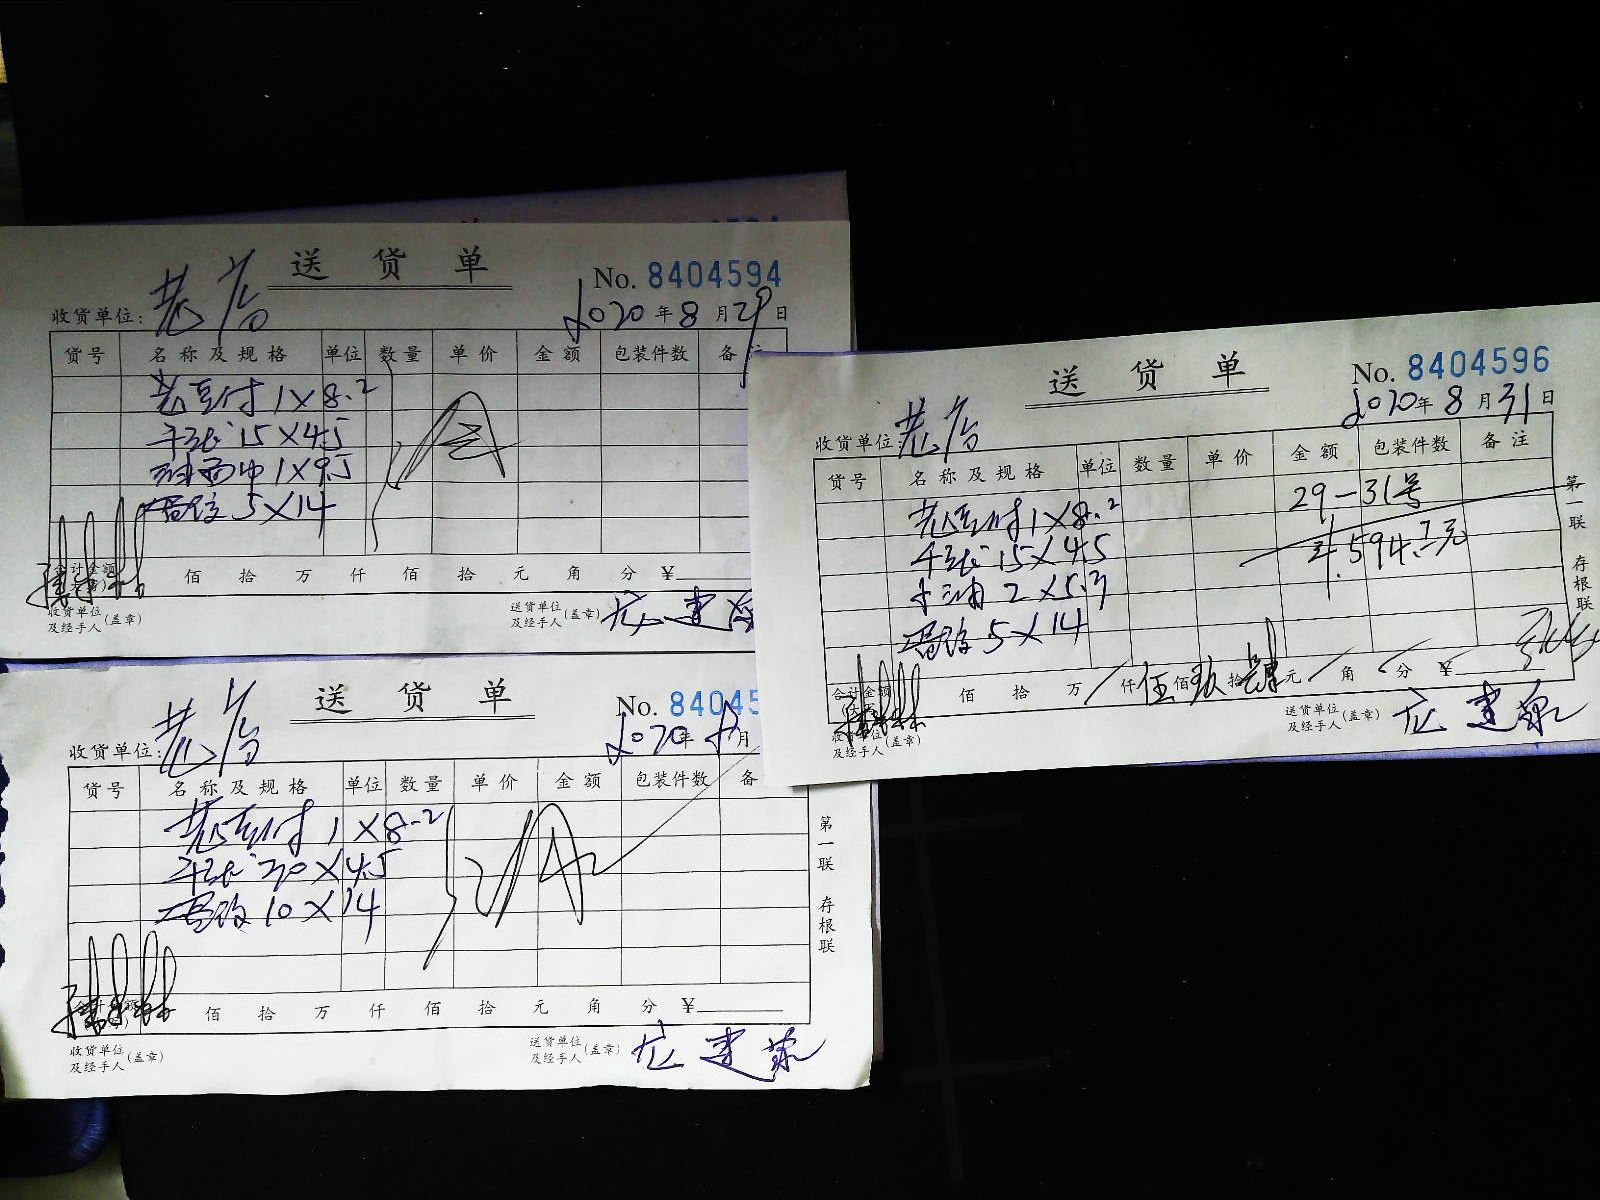 送 货 单
No. 8404594
收货单位: 老店
2020年8月29日
货号 名称及规格 单位 数量 单价 金额 包装件数 备
老豆付 1×8.2
千张 15×4.5
1×9.5
5×14
合计金额 佰 拾 万 仟 佰 拾 元 角 分 ¥
收货单位及经手人(盖章)
送货单位及经手人(盖章) 龙建
送 货 单
No. 84045
收货单位: 老店
2020年 月
货号 名称及规格 单位 数量 单价 金额 包装件数 备
老豆付 1×8.2
千张 30×4.5
10×14
佰 拾 万 仟 佰 拾 元 角 分 ¥
收货单位及经手人(盖章)
送货单位及经手人(盖章) 龙建
第一联 存根联
送 货 单
No. 8404596
收货单位: 老店
2020年8月31日
货号 名称及规格 单位 数量 单价 金额 包装件数 备注
29-31号
老豆付 1×8.2
¥594
千张 15×4.5
2×5.3
5×14
合计金额 佰 拾 万 仟 伍 佰 玖 拾 肆 元 角 分 ¥
收货单位及经手人(盖章)
送货单位及经手人(盖章) 龙建
第一联 存根联